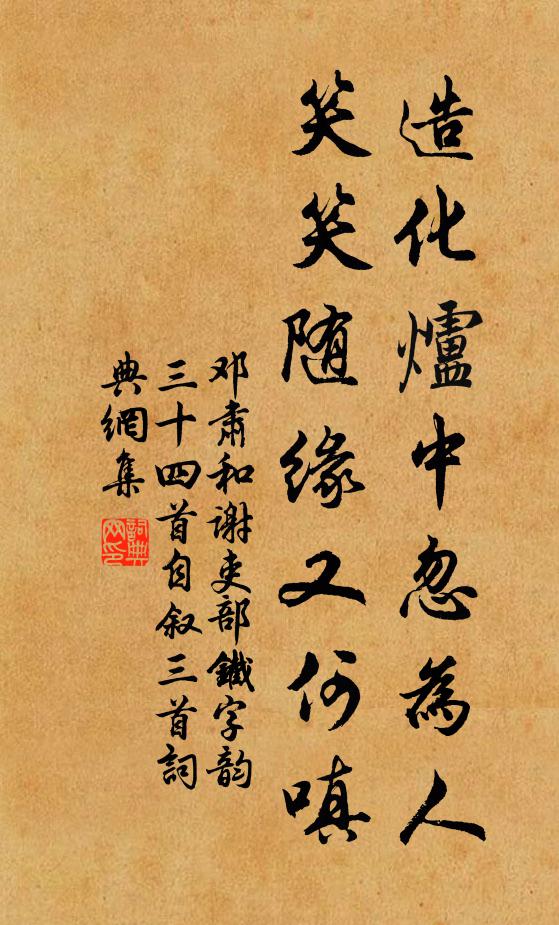 造化爐中忽為人
笑笑随緣又何嗔
邓肅和謝吏部鐵字韵
三十四首自叙三首詞
典網集
詞典网印